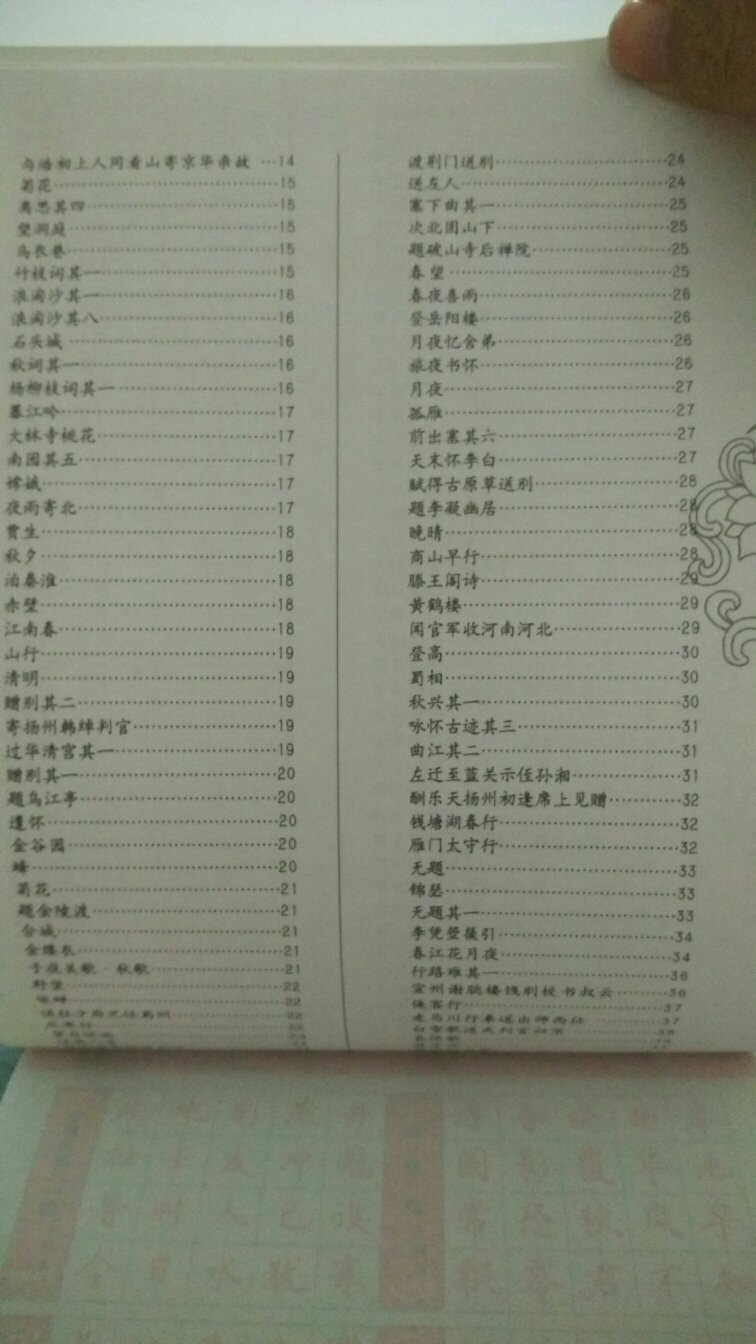 与浩初上人同看山寄京华亲故…14
菊花…15
离思其四…15
望洞庭…15
乌衣巷…15
竹枝词其一…15
浪淘沙其一…16
浪淘沙其八…16
石头城…16
秋词其一…16
杨柳枝词其一…16
暮江吟…17
大林寺桃花…17
南园其五…17
嫦娥…17
夜雨寄北…17
贾生…18
秋夕…18
泊秦淮…18
赤壁…18
江南春…18
山行…19
清明…19
赠别其二…19
寄扬州韩绰判官…19
过华清宫其一…19
赠别其一…20
题乌江亭…20
遣怀…20
金谷园…20
蜂…20
菊花…21
题金陵渡…21
台城…21
金缕衣…21
子夜吴歌·秋歌…21
野望…22
咏蝉…22
送杜少府之任蜀州…22
从军行…22
渡荆门送别…24
送友人…24
塞下曲其一…25
次北固山下…25
题破山寺后禅院…25
春望…25
春夜喜雨…26
登岳阳楼…26
月夜忆舍弟…26
旅夜书怀…26
月夜…27
孤雁…27
前出塞其六…27
天末怀李白…27
赋得古原草送别…28
题李凝幽居…28
晚晴…28
商山早行…28
滕王阁诗…29
黄鹤楼…29
闻官军收河南河北…29
登高…30
蜀相…30
秋兴其一…30
咏怀古迹其三…31
曲江其二…31
左迁至蓝关示侄孙湘…31
酬乐天扬州初逢席上见赠…32
钱塘湖春行…32
雁门太守行…32
无题…33
锦瑟…33
无题其一…33
李凭箜篌引…34
春江花月夜…34
行路难其一…36
宣州谢朓楼饯别校书叔云…36
侠客行…37
走马川行奉送出师西征…37
白雪歌送武判官归京…38